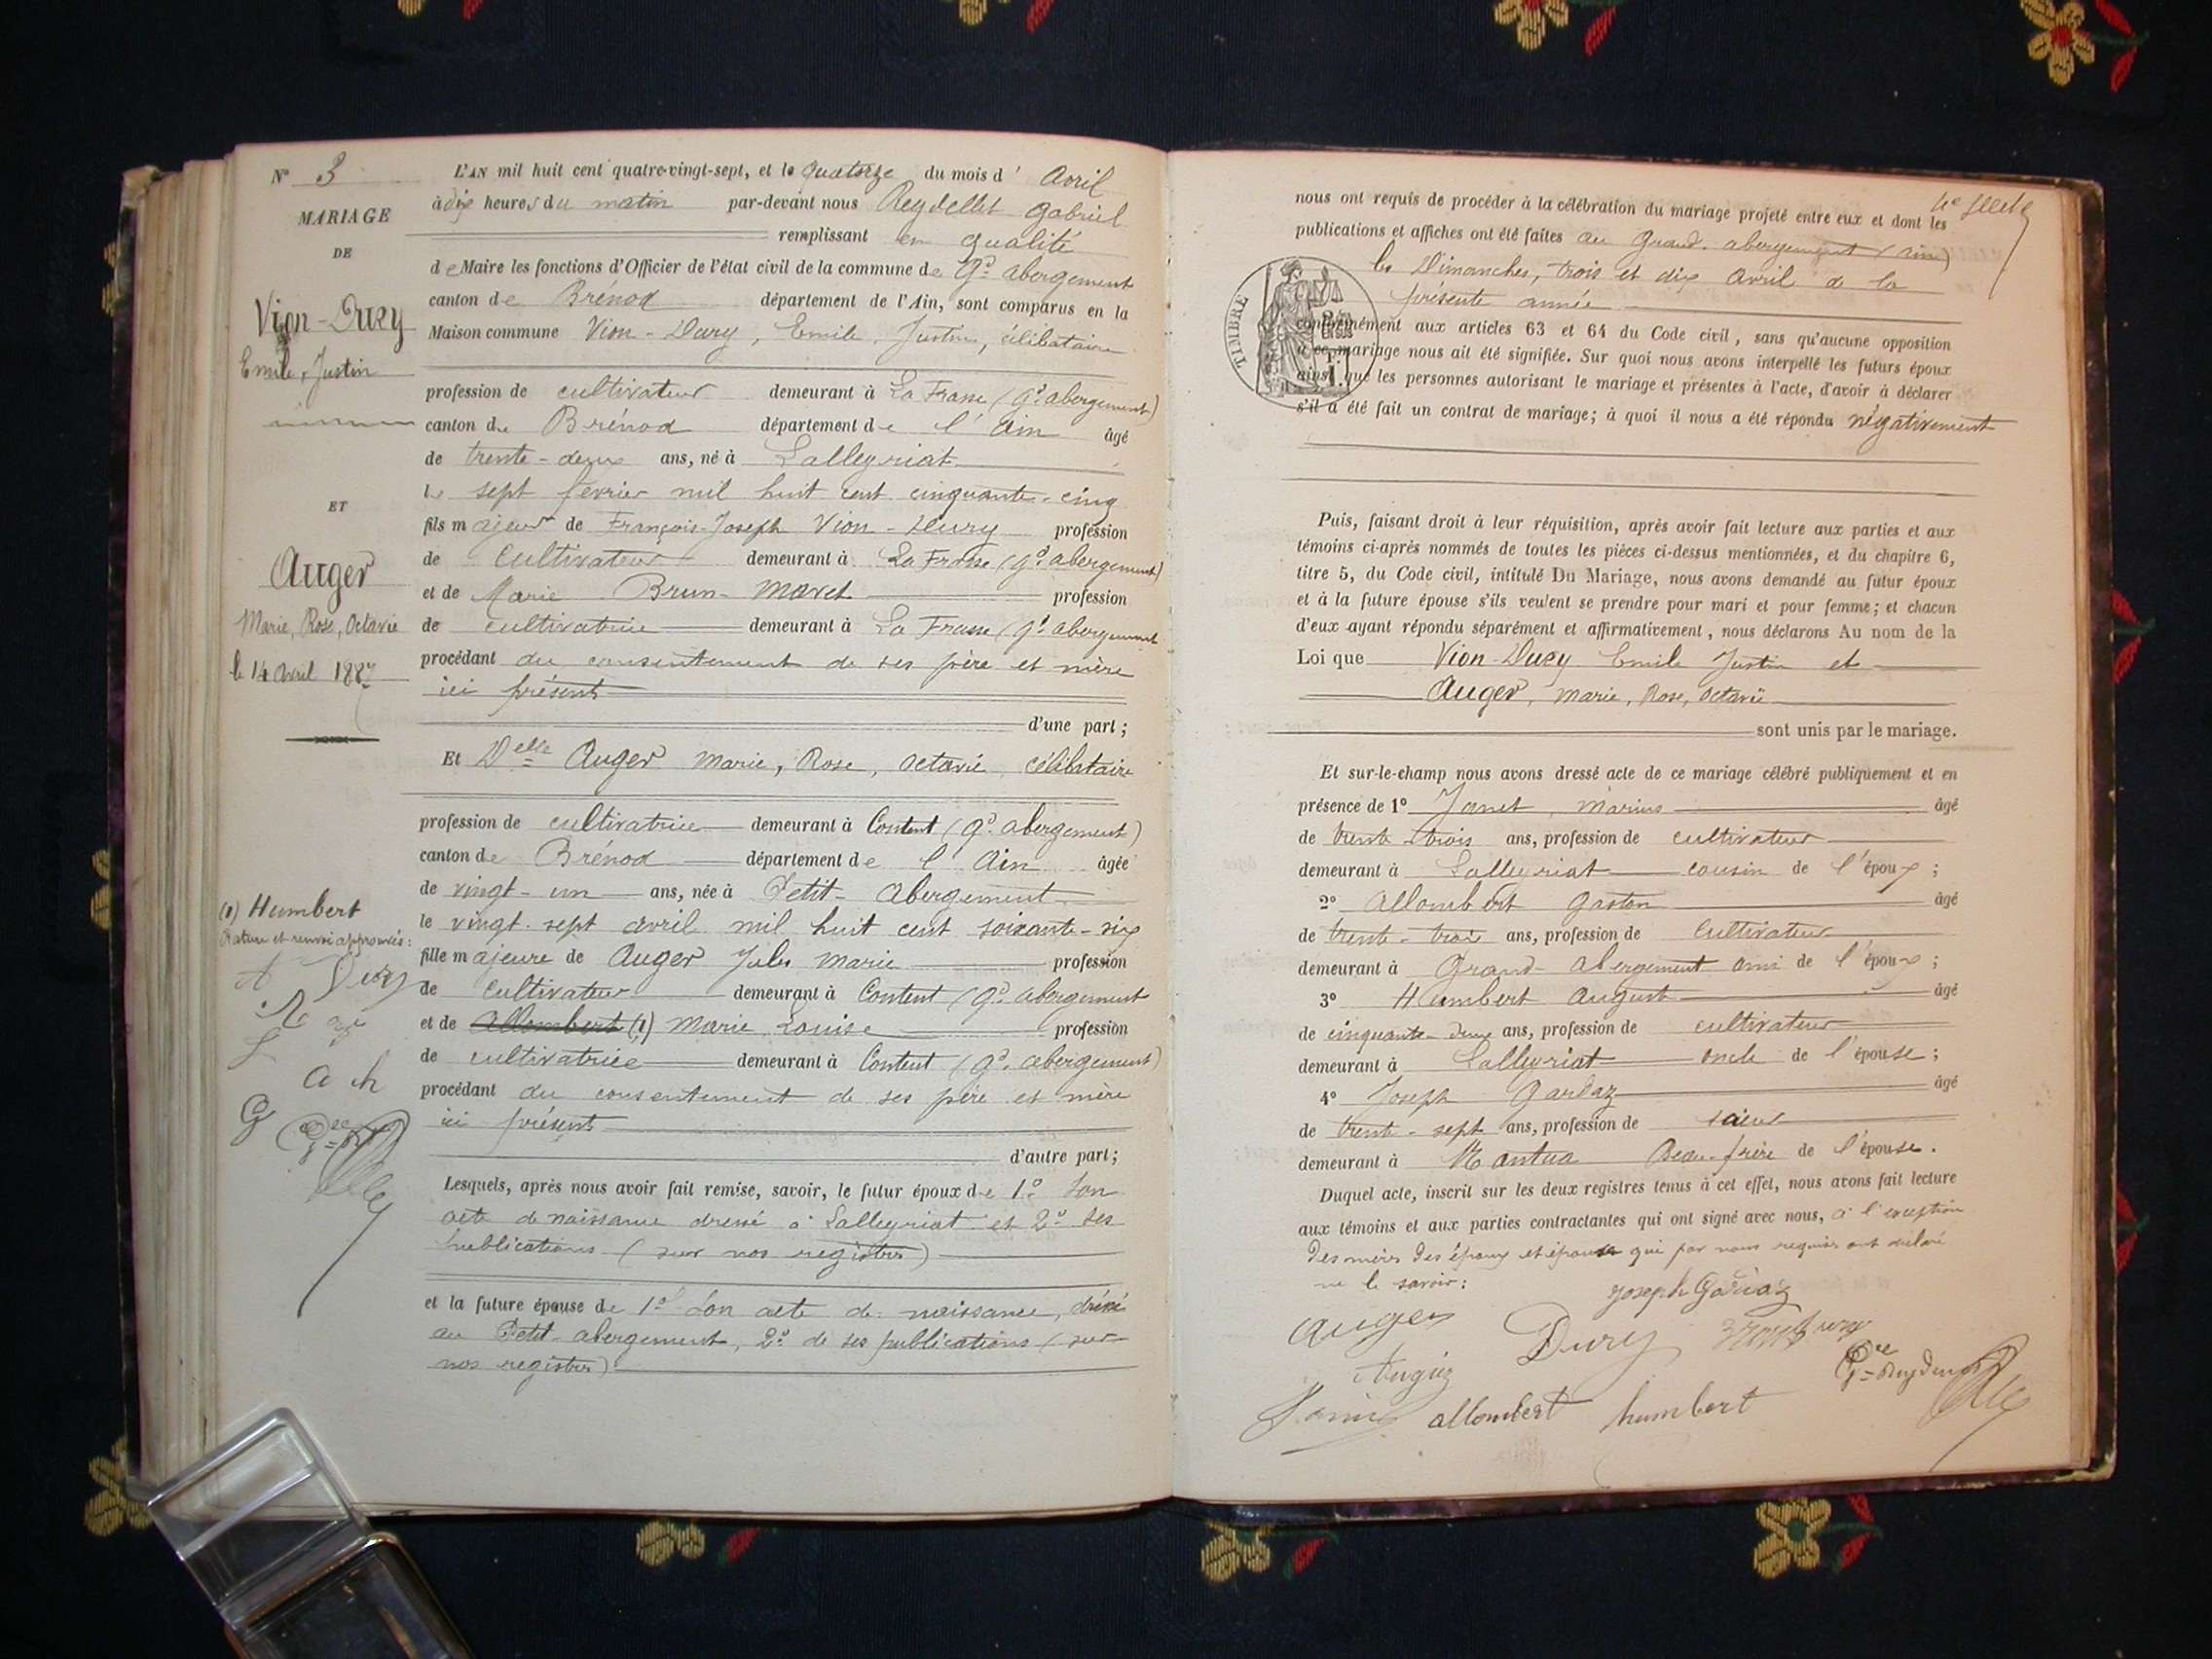 N° 3
MARIAGE
DE
Vion-Dury
Emile, Justin
ET
Auger
Marie, Rose, Octavie
le 14 Avril 1887
(1) Humbert
Rature et renvoi approuvés:
A Dury
a h
G
L'AN mil huit cent quatre-vingt-sept, et le quatorze du mois d' Avril
à dix heures du matin par-devant nous Reydellet Gabriel
remplissant en qualité
de Maire les fonctions d'Officier de l'état civil de la commune de Gd abergement
canton de Brénod département de l'Ain, sont comparus en la
Maison commune Vion-Dury, Emile, Justin, célibataire
profession de cultivateur demeurant à La Frasse (Gd abergement)
canton de Brénod département de l'Ain âgé
de trente-deux ans, né à Lalleyriat
le sept fevrier mil huit cent cinquante-cinq
fils majeur de François-Joseph Vion-Dury profession
de Cultivateur demeurant à La Frasse (gd abergement)
et de Marie Brun-Maret profession
de cultivatrice demeurant à La Frasse (gd abergement
procédant du consentement de ses père et mère
ici présents
d'une part;
Et Delle Auger Marie, Rose, Octavie célibataire
profession de cultivatrice demeurant à Content (gd abergement)
canton de Brénod département de l'Ain âgée
de vingt-un ans, née à Petit-Abergement
le vingt-sept avril mil huit cent soixante-six
fille majeure de Auger Jules Marie profession
de Cultivateur demeurant à Content (gd abergement
et de Allombert (1) Marie Louise profession
de cultivatrice demeurant à Content (gd abergement)
procédant du consentement de ses père et mère
ici présents
d'autre part;
Lesquels, après nous avoir fait remise, savoir, le futur époux de 1° Son
acte de naissance dressé à Lalleyriat et 2° ses
publications (sur nos registres)
et la future épouse de 1° Son acte de naissance, dressé
au Petit-abergement, 2° de ses publications (sur
nos registres)
nous ont requis de procéder à la célébration du mariage projeté entre eux et dont les
publications et affiches ont été faites au Grand-abergement (ain)
les Dimanches, trois et dix Avril de la
présente année
TIMBRE
conformément aux articles 63 et 64 du Code civil, sans qu'aucune opposition
à ce mariage nous ait été signifiée. Sur quoi nous avons interpellé les futurs époux
ainsi que les personnes autorisant le mariage et présentes à l'acte, d'avoir à déclarer
s'il a été fait un contrat de mariage; à quoi il nous a été répondu négativement
Puis, faisant droit à leur réquisition, après avoir fait lecture aux parties et aux
témoins ci-après nommés de toutes les pièces ci-dessus mentionnées, et du chapitre 6,
titre 5, du Code civil, intitulé Du Mariage, nous avons demandé au futur époux
et à la future épouse s'ils veulent se prendre pour mari et pour femme; et chacun
d'eux ayant répondu séparément et affirmativement, nous déclarons Au nom de la
Loi que Vion-Dury Emile Justin et
Auger, Marie, Rose, Octavie
sont unis par le mariage.
Et sur-le-champ nous avons dressé acte de ce mariage célébré publiquement et en
présence de 1° Janet, Marius âgé
de trente-trois ans, profession de cultivateur
demeurant à Lalleyriat cousin de l'époux;
2° Allombert Gaston âgé
de trente-trois ans, profession de Cultivateur
demeurant à Grand-Abergement ami de l'époux;
3° Humbert Auguste âgé
de cinquante-deux ans, profession de cultivateur
demeurant à Lalleyriat oncle de l'épouse;
4° Joseph Gardaz âgé
de trente-sept ans, profession de scieur
demeurant à Nantua Beau-frère de l'épouse.
Duquel acte, inscrit sur les deux registres tenus à cet effet, nous avons fait lecture
aux témoins et aux parties contractantes qui ont signé avec nous, à l'exception
des mères des époux et épouse qui par nous requises ont déclaré
ne le savoir:
Joseph Gardaz
Auger
Dury
Janet
allombert
humbert